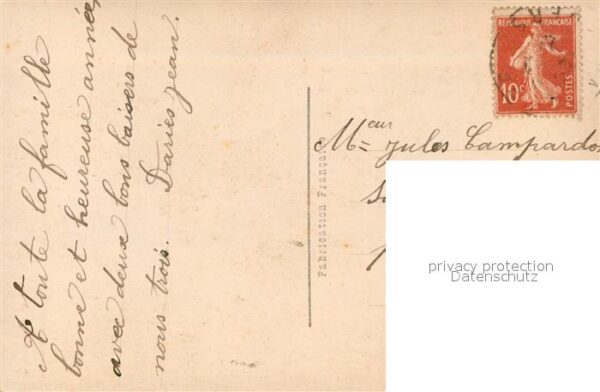 A toute la famille
bonne et heureuse année
avec deux bons baisers de
nous trois. Daries Jean.
Fabrication Française
REPUBLIQUE FRANÇAISE
10c
POSTES
Mceur Jules Campardo
privacy protection
Datenschutz